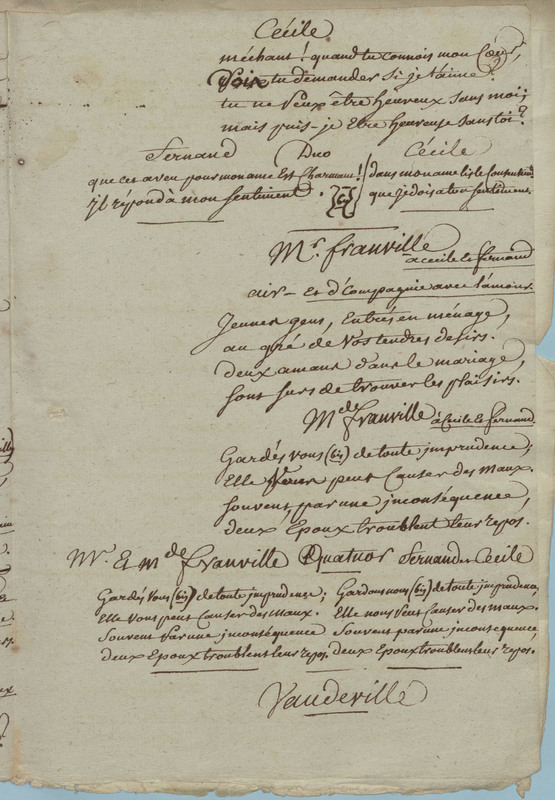 Cécile
méchant! quand tu connois mon Cœur,
dois tu demander si je t'aime!
tu ne veux être heureux sans moi;
mais puis-je Etre heureuse sans toi?
Fernand Duo Cécile
que cet aveu pour mon ame Est Charmant! / dans mon ame lis le
il répond à mon sentiment. (bis) / que je dois a ton sentiment.
Mr. franville
a cecile et fernand
air - Et d'Compagnie avec l'amour.
Jeunes gens, Entrés en ménage,
au gré de vos tendres desirs.
deux amans dans le mariage,
sont surs de trouver les plaisirs.
Mde franville à Cecile et fernand
Gardés vous (bis) de toute imprudence;
Elle peut Causer des maux.
souvent par une inconséquence,
deux Epoux troublent leur repos.
Mr. & mde franville Quatuor Fernand et Cécile
Gardés vous (bis) de toute imprudence; Gardons nous (bis) de toute imprudence,
Elle vous peut Causer des maux. Elle nous peut Causer des maux.
Souvent par une inconséquence Souvent par une inconsequence,
deux Epoux troublent leur repos. deux Epoux troublent leur repos.
Vaudeville